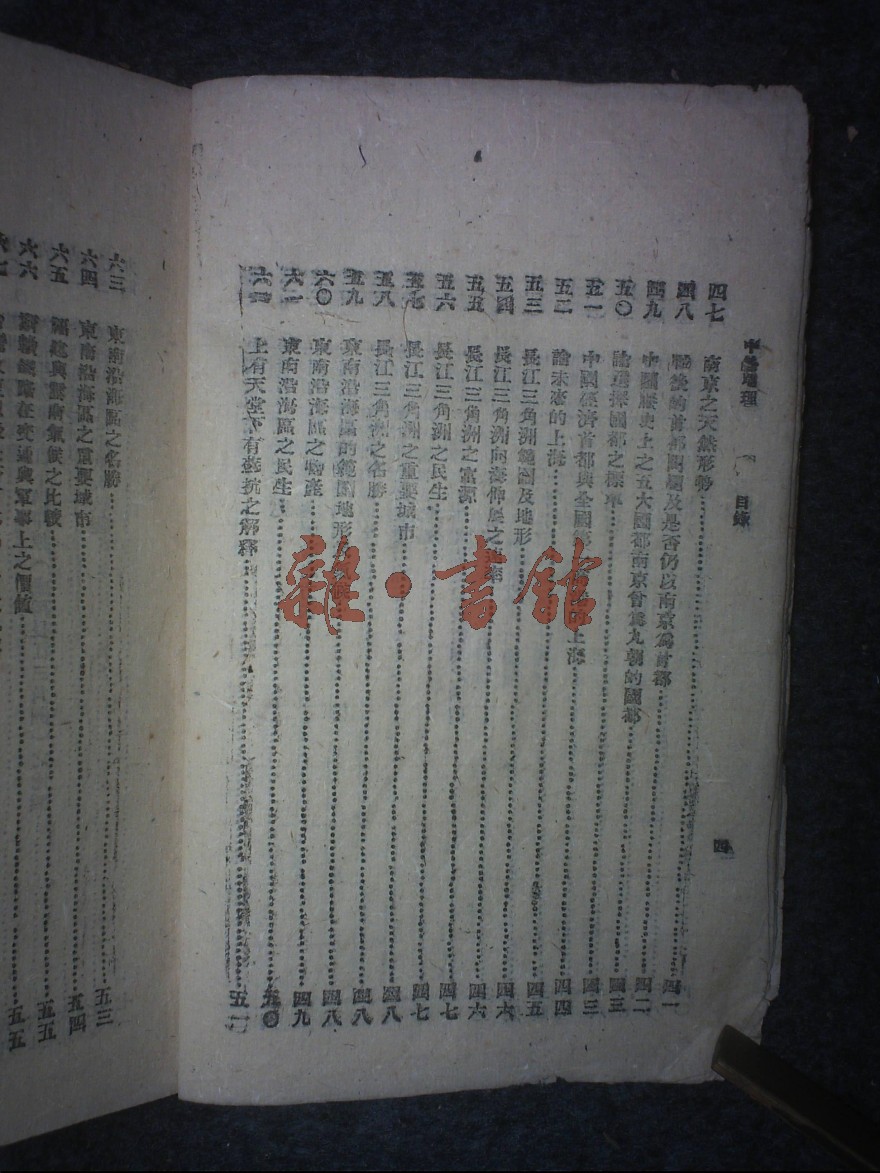 目錄
四
四七 南京之天然形勢 四一
四八 戰後的首都問題及是否仍以南京為首都 四一
四九 中國歷史上之五大國都南京曾為九朝的國都 四二
五〇 論選擇國都之標準 四三
五一 中國經濟首都與全國 上海 四三
五二 論未來的上海 四四
五三 長江三角洲範圍及地形 四五
五四 長江三角洲向海伸展之 四六
五五 長江三角洲之富源 四六
五六 長江三角洲之民生 四七
五七 長江三角洲之重要城市 四七
五八 長江三角洲之名勝 四八
五九 東南沿海區的範圍地形 四八
六〇 東南沿海區之物產 四八
六一 東南沿海區之民生 四九
六二 上有天堂下有蘇杭之解釋 五〇
六三 東南沿海區之名勝 五三
六四 東南沿海區之重要城市 五四
六五 福建與 氣候之比較 五五
六六 鐵路在交通與軍事上之價值 五五
雜·書館